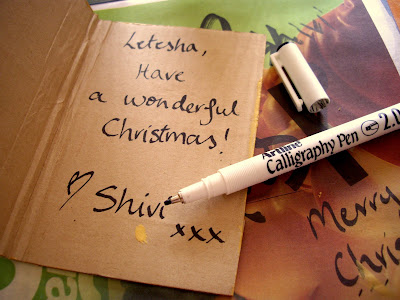 Letesha,
Have
a wonderful
Christmas!
♡ Shivi
xxx
Artline
Calligraphy Pen 2.0
Merry